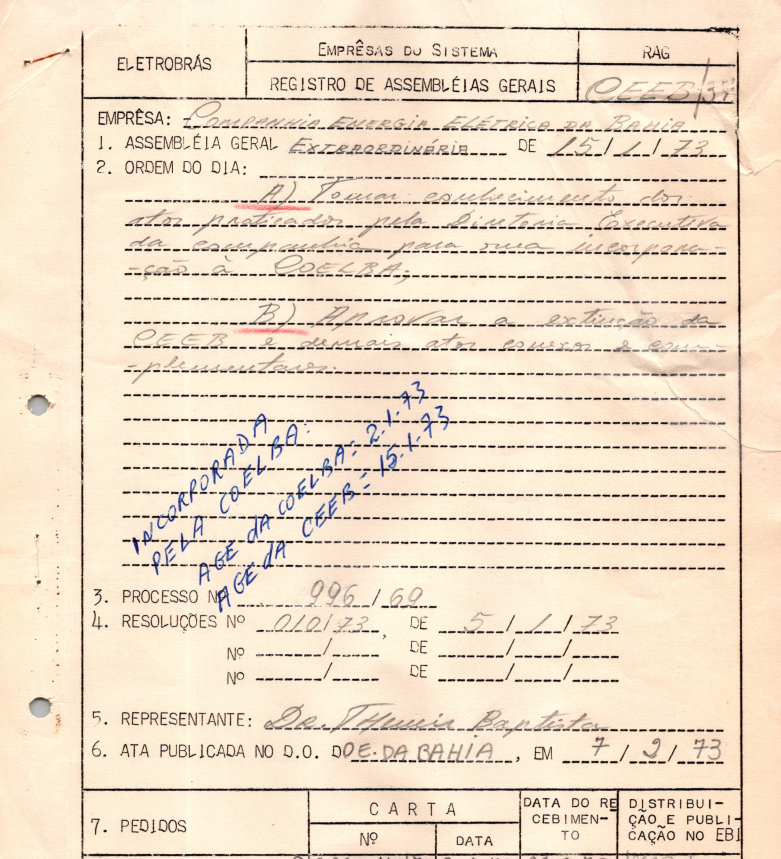 ELETROBRÁS
EMPRÊSAS DO SISTEMA
RAG
REGISTRO DE ASSEMBLÉIAS GERAIS
CEEB/37
EMPRÊSA: COMPANHIA ENERGIA ELÉTRICA DA BAHIA
1. ASSEMBLÉIA GERAL EXTRAORDINÁRIA DE 15/1/73
2. ORDEM DO DIA:
A) Tomar conhecimento dos
atos praticados pela Diretoria Executiva
da companhia para sua incorpora-
-ção à COELBA;
B) Aprovar a extinção da
CEEB e demais atos conexos e com-
-plementares.
INCORPORADA
PELA COELBA:
AGE DA COELBA = 2.1.73
AGE DA CEEB = 15.1.73
3. PROCESSO Nº 996/69
4. RESOLUÇÕES Nº 010/73, DE 5/1/73
Nº / DE / /
Nº / DE / /
5. REPRESENTANTE: Dr. Baptista
6. ATA PUBLICADA NO D.O. DO E. DA BAHIA, EM 7/2/73
7. PEDIDOS
CARTA
Nº
DATA
DATA DO RE
CEBIMEN-
TO
DISTRIBUI-
ÇÃO E PUBLI-
CAÇÃO NO EBI